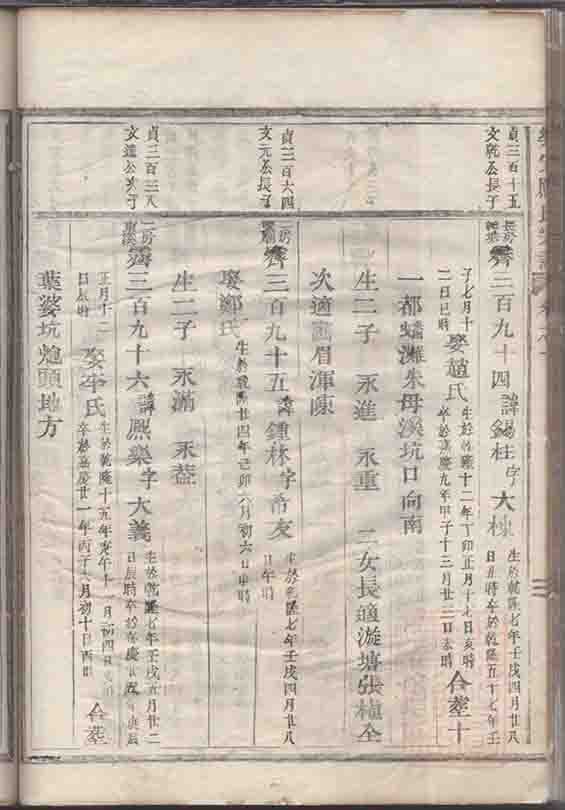 貞三百十五
文乾公長子
長房
齊三百九十四 諱錫柱 字大棟
生於乾隆七年壬戌四月廿八
日丑時卒於乾隆五十七年壬
子七月十
二日巳時
娶趙氏
生於乾隆十二年丁卯正月十七日亥時
卒於嘉慶九年甲子十二月廿二日未時
合塟十
一都蟠灘朱母溪坑口向南
生二子 永進 永重 二女長適漩塘張植全
次適眉渾陳
貞三百六四
文元公長子
二房
齊三百九十五 諱鍾林 字帝友
生於乾隆七年壬戌四月廿八
日午時
娶鄭氏
生於乾隆廿四年己卯六月初六日申時
生二子 永滿 永
貞三百三八
文達公次子
二房
齊三百九十六 諱熙樂 字大義
生於乾隆七年壬戌五月廿二
日辰時卒於嘉慶廿五年庚辰
正月十二
日辰時
娶李氏
生於乾隆十五年庚午十一月初四日時
卒於嘉慶廿一年丙子八月初十日酉時
合塟
葉婆坑炮頭地方